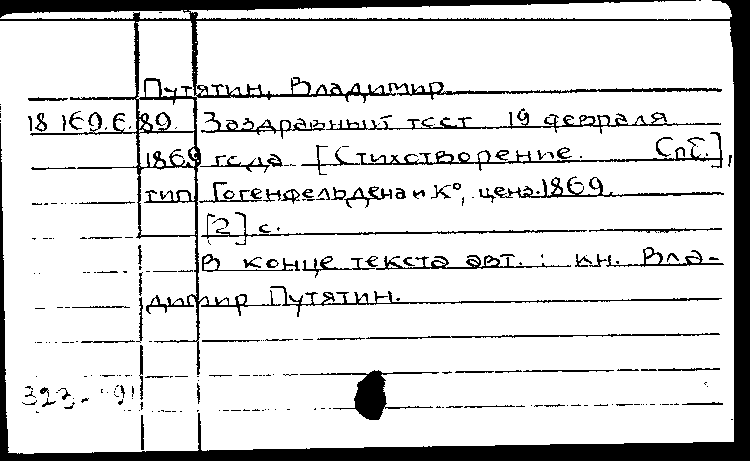 Путятин, Владимир
18 169.6.89. Заздравный тост 19 февраля
1869 года [Стихотворение. СПб.],
тип Гогенфельдена и К°, ценз. 1869.
[2] с.
В конце текста авт. : кн. Вла-
димир Путятин.
323- 91